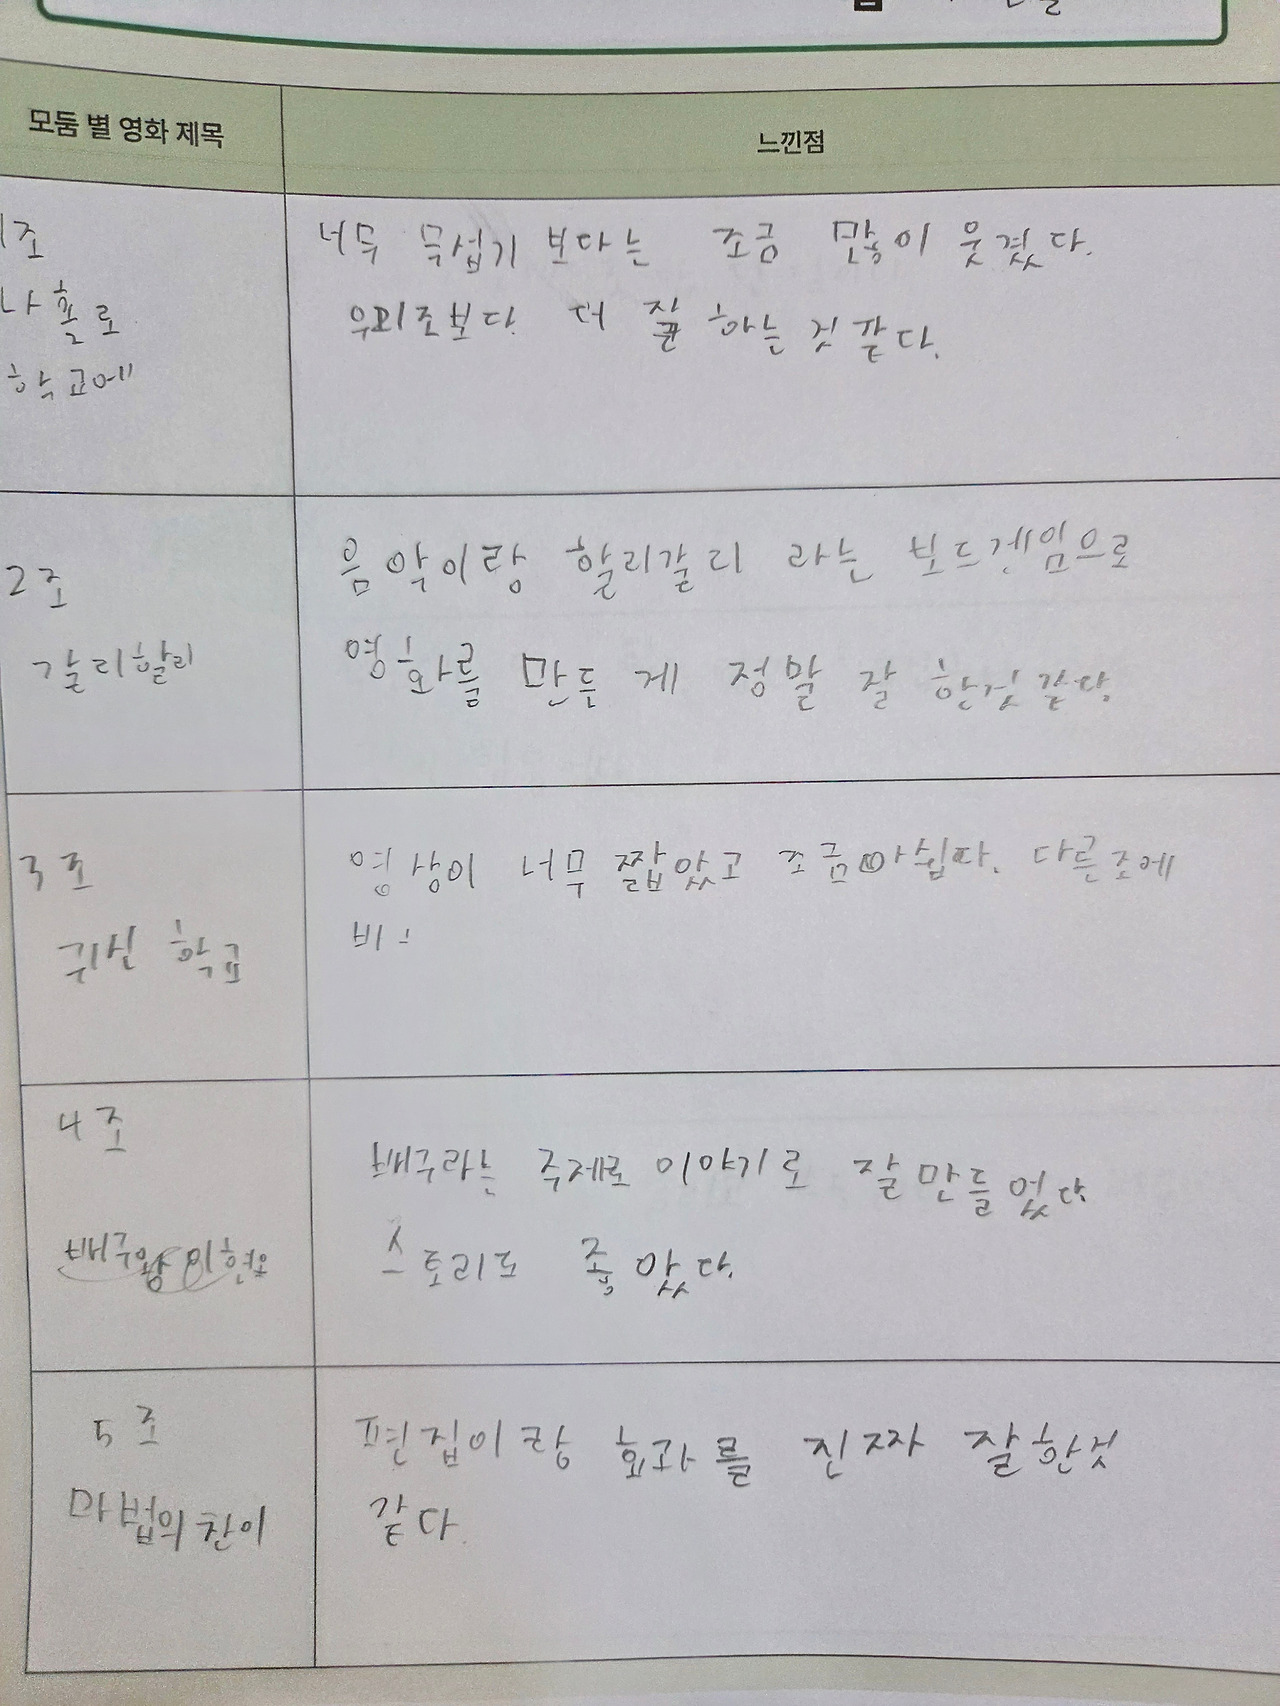 모둠 별 영화 제목
느낀점
1조
나 홀로
학교에
너무 무섭기 보다는 조금 많이 웃겼다.
우리조보다 더 잘 하는 것 같다.
2조
갈리할리
음악이랑 할리갈리 라는 보드게임으로
영화를 만든 게 정말 잘 한것 같다.
3조
귀신 학교
영상이 너무 짧았고 조금 아쉽다. 다른조에
비
4조
배구왕 이현호
배구라는 주제로 이야기로 잘 만들었다
스토리도 좋았다.
5조
마법의 찬이
편집이랑 효과를 진짜 잘한것
같다.